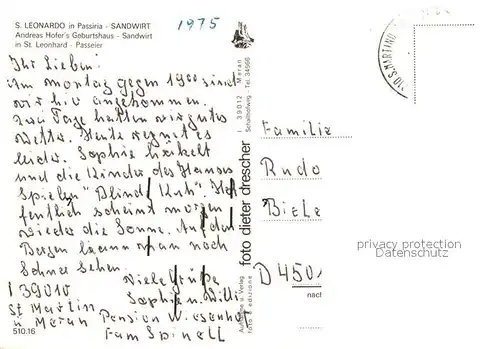 S. LEONARDO in Passiria - SANDWIRT
Andreas Hofer's Geburtshaus - Sandwirt
in St. Leonhard - Passeier
1975
Ihr Lieben!
Am Montag gegen 1900 sind
wir hir angekommen.
Zwei Tage hatten wir gutes
Wetter. Heute regnet es
leider. Sophie häkelt
und die Kinder des Hauses
Spielen "Blinde Kuh". Hof
fentlich scheint morgen
wieder die Sonne. Auf den
Bergen kann man noch
Schnee sehen.
Viele Grüße
Sophie u. Willi
I 39010
St Martin
u Meran Pension Wiesenhof
Fam Spinell
510.16
foto dieter drescher
I 39012 Meran
Schallhofweg - Tel. 34966
Aufnahme u. Verlag
foto e edizione
Familie
Rudo
Biele
D 450
nach
S. MARTINO
privacy protection
Datenschutz